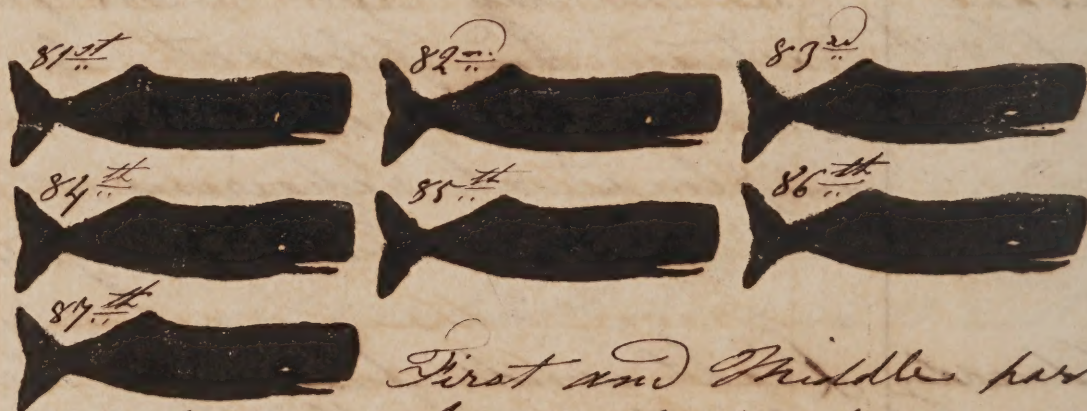 81st 82nd 83rd
84th 85th 86th
87th
First and Middle par